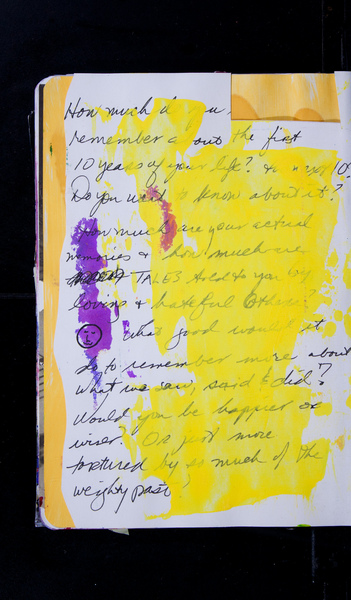 How much do you
remember about the first
10 years of your life? & next 10?
Do you want to know about it?
How much are your actual
memories & how much are
TALES told to you by
loving & hateful others?
What good would it
do to remember more about
what we saw, said & did?
Would you be happier or
wiser? Or just more
tortured by so much of the
weighty past?